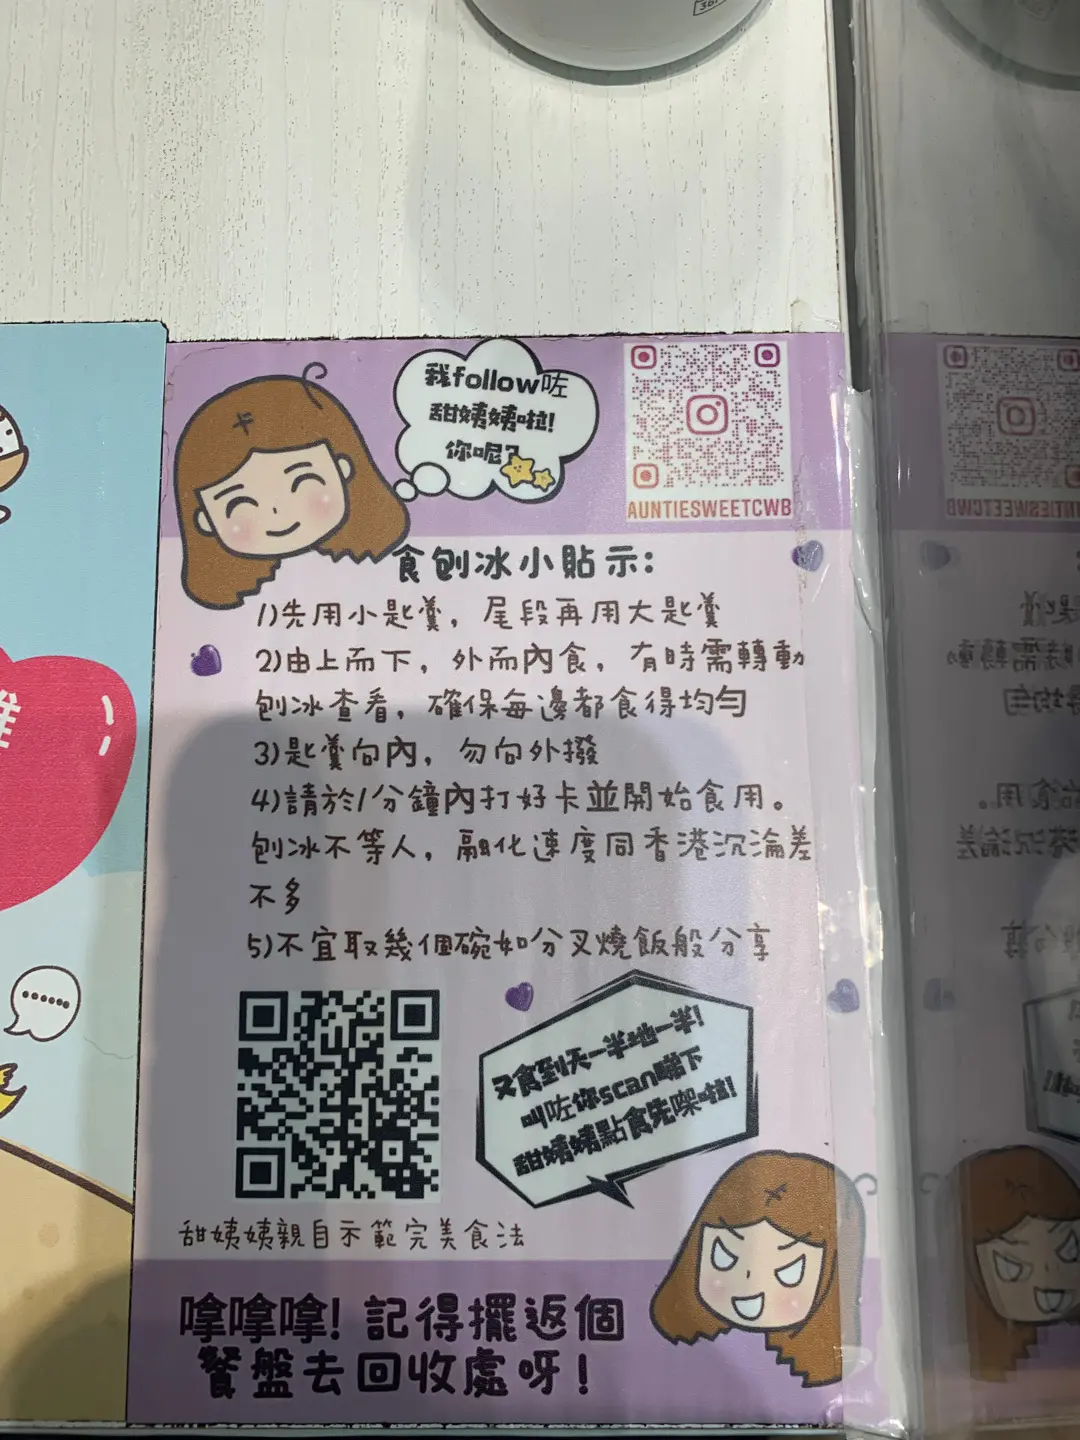 我follow咗
甜姨姨啦!
你呢?
AUNTIESWEETCWB
食刨冰小貼示:
1)先用小匙羹，尾段再用大匙羹
2)由上而下，外而內食，有時需轉動
刨冰查看，確保每邊都食得均勻
3)匙羹向內，勿向外撥
4)請於1分鐘內打好卡並開始食用。
刨冰不等人，融化速度同香港沉淪差
不多
5)不宜取幾個碗如分叉燒飯般分享
又食到天一半地一半!
叫咗你scan睇下
甜姨姨點食先㗎啦!
甜姨姨親自示範完美食法
嗱嗱嗱!記得擺返個
餐盤去回收處呀!
......